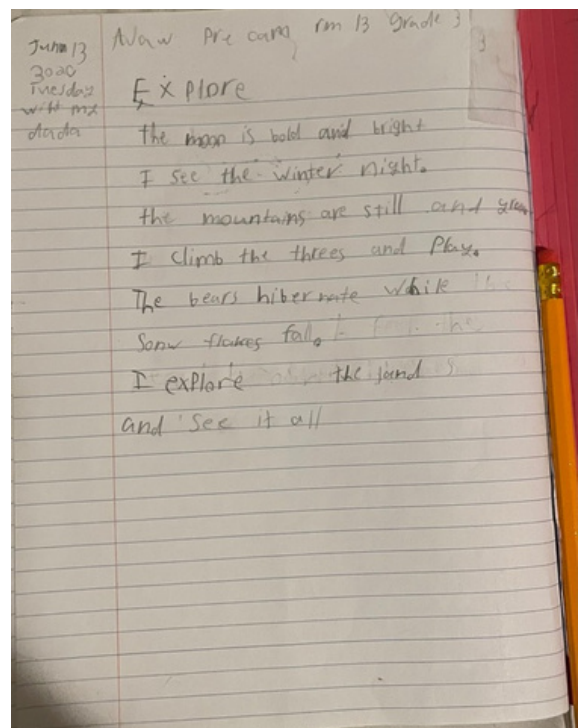 June 13
3020
Tuesday
with mx
dada
rm 13 grade 3
3
Explore
the moon is bold and bright
I see the winter night.
the mountains are still and
I climb the threes and Play.
The bears hibernate while the
Sonw flakes fall.
I explore the land
and see it all